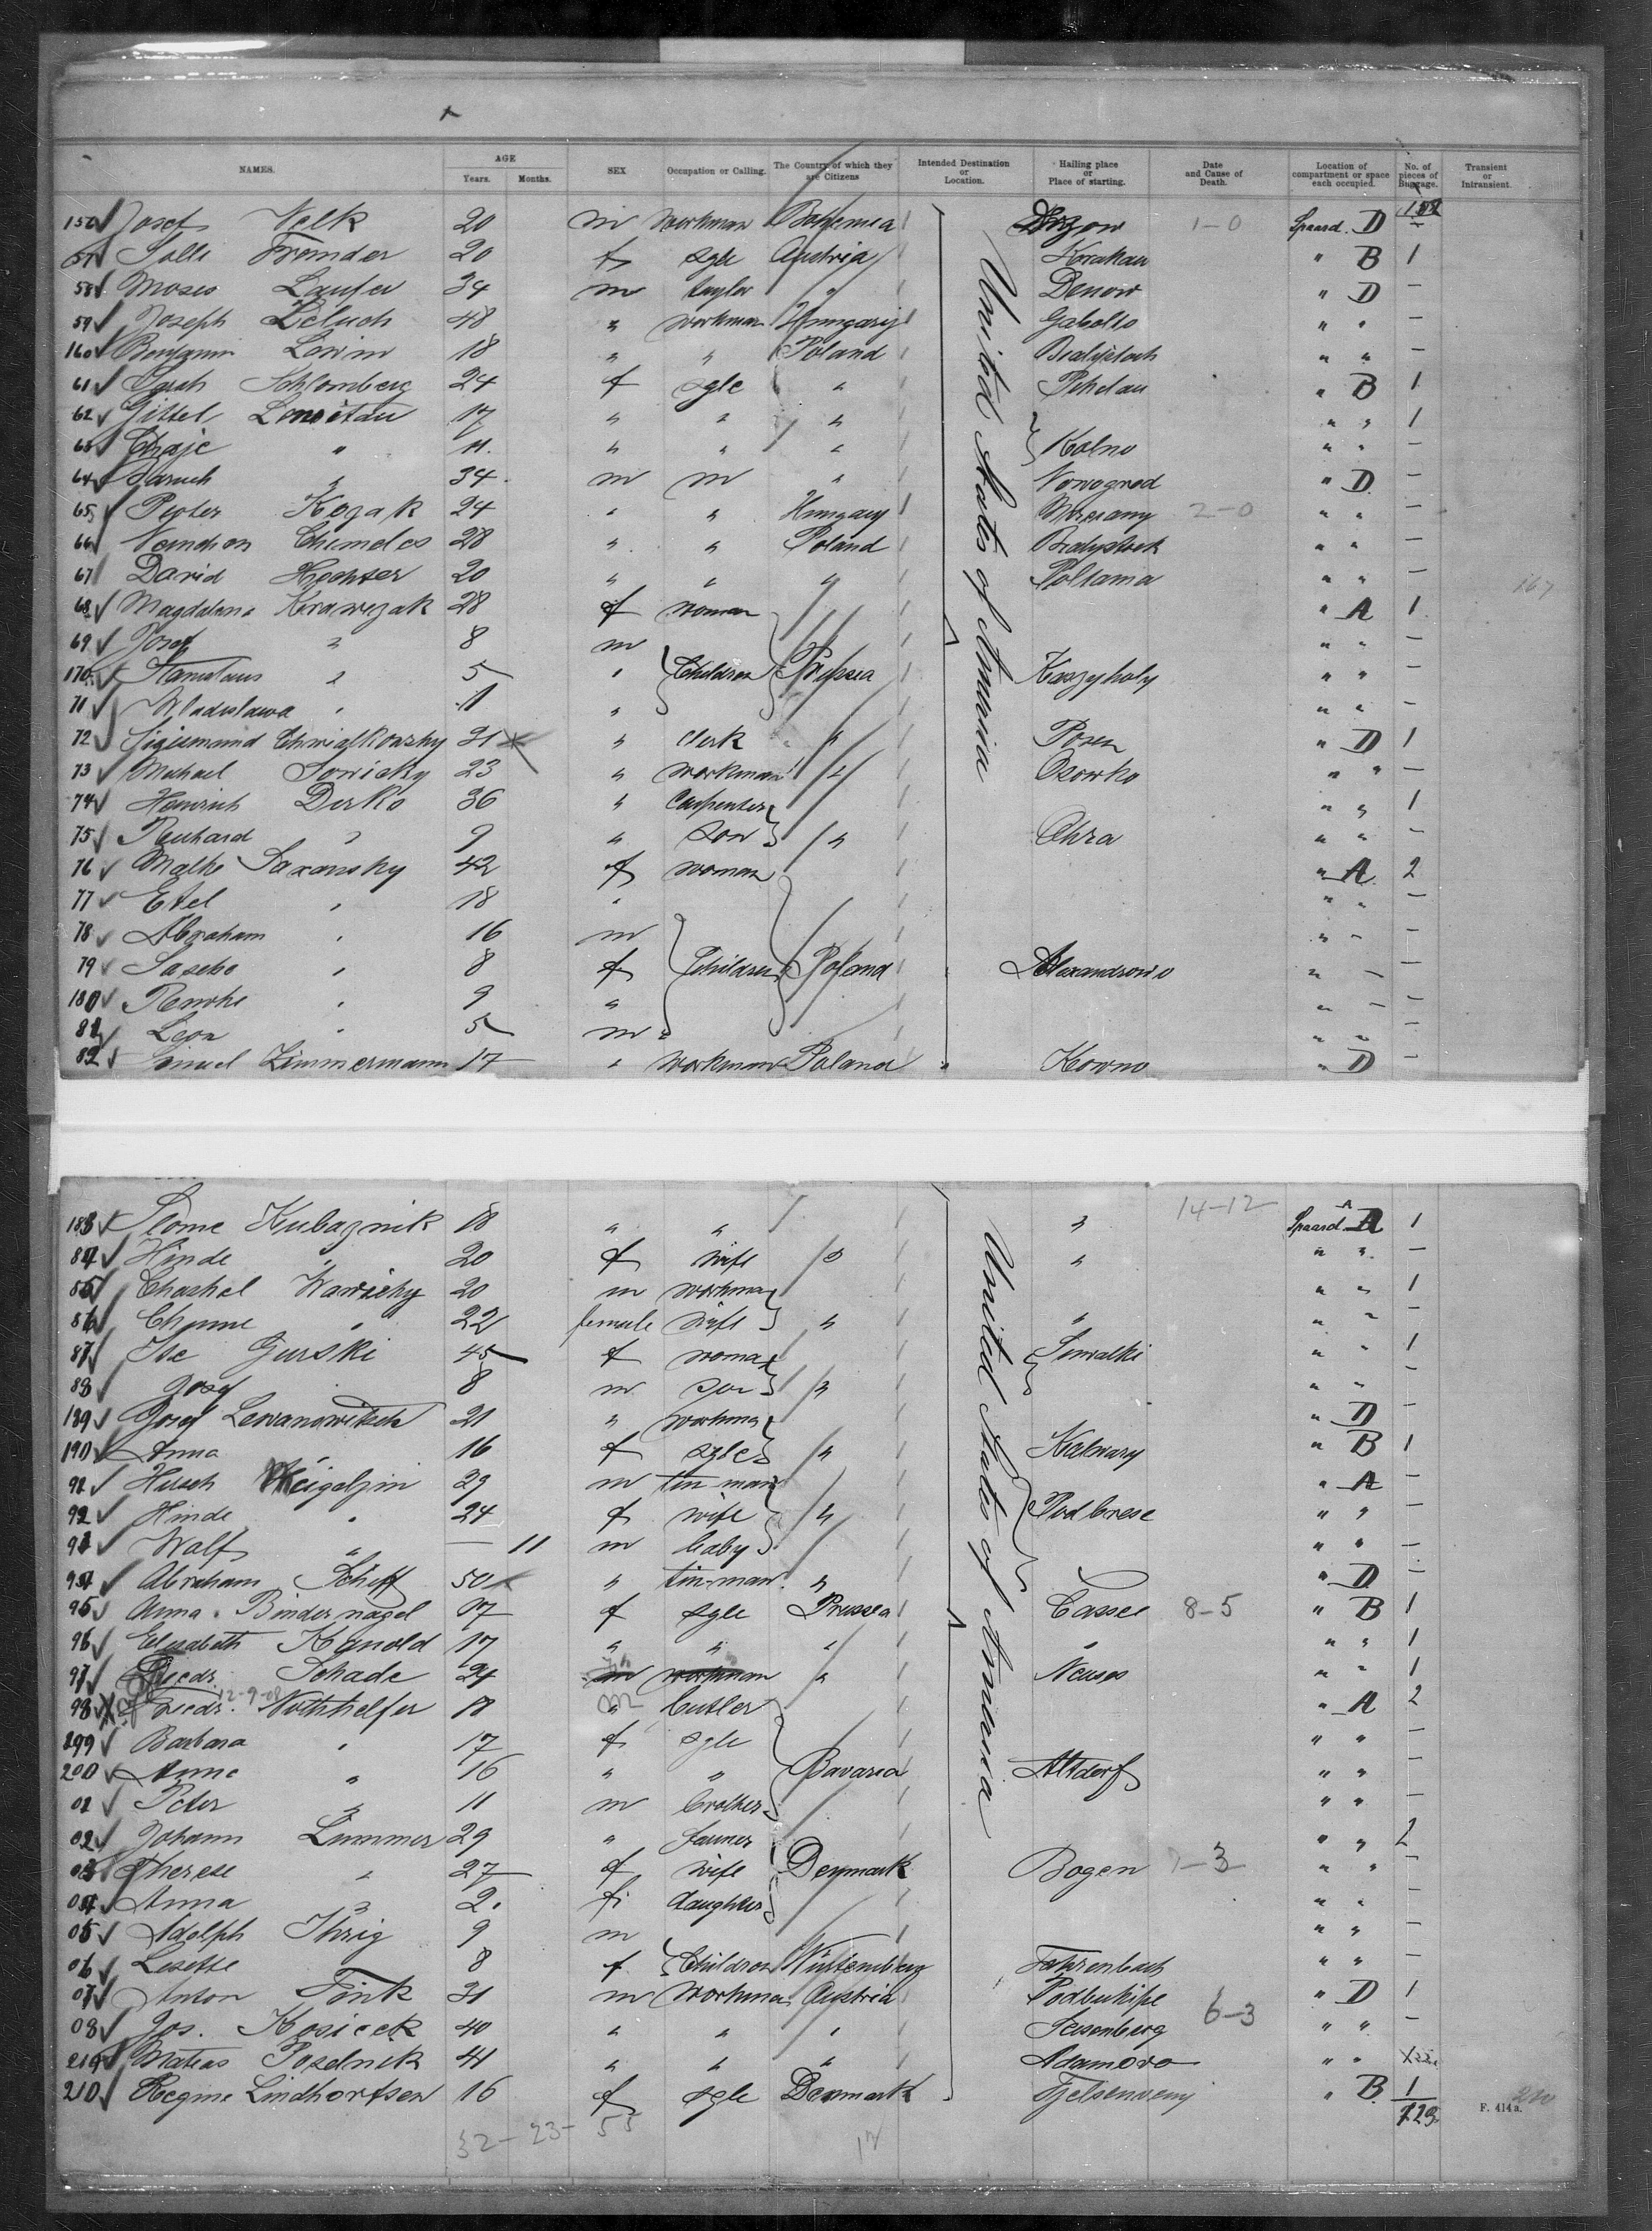 NAMES. AGE Years. Months. SEX Occupation or Calling. The Country of which they are Citizens Intended Destination or Location. Hailing place or Place of starting. Date and Cause of Death. Location of compartment or space each occupied. No. of pieces of Baggage. Transient or Intransient.
Josef Volk 20 m Workman Bohemia 1-0 Spaard. D
Salli Fromder 20 f sgle Austria Krakau " B 1
58 Moses Laufer 34 m taylor " Denow " D —
59 Joseph Leluch 48 " workman Hungary Gabolto " " —
160 Benjamin Lewin 18 " " Poland " " —
61 Sarah Schlomberg 24 f sgle " " B 1
62 Gittel 17 " " " " " 1
63 Chaje " 11. " " " Kolno " " —
64 Baruch " 34 m m " Nowogrod " D —
65 Peoter Kozak 24 " " Hungary 2-0 " " —
66 Chimeles 28 " " Poland Bialystock " " —
67 David Hochster 20 " " " Poltama " " — 167
68 Magdalena Krawczak 28 f woman " A 1
69 Josef " 8 m " " —
170 Stanislaus " 5 " Children Prussia " " —
71 Wladislawa " 11 " " " —
72 Sigismund Chwialkowsky 31 " clerk " Posen " D 1
73 Michael Sowicky 23 " workman " Osowko " " —
74 Heinrich Derko 36 " Carpenter " " 1
75 Reuhard " 9 " son " Ohra " " —
76 Malke Saxansky 42 f woman " A 2
77 Etel " 18 " " " —
78 Abraham " 16 m " " —
79 Sascho " 8 f Children Poland Alexandrowo " — —
180 Rewke " 9 " " — —
81 Leon " 5 m " " " —
82 Zimmermann 17 " workman Poland " Kowno " D —
United States of America
183 Slome Kubaznik 18 " " " 14-12 Spaard A 1
84 Hinde " 20 f wife " " " " —
85 Chaskel Warischy 20 m workman " " 1
86 " 22 female wife " " " " —
87 Gurski 45 f woman Suwalki " " 1
88 Josef 8 m son " " " —
189 Josef Lewanowitsch 21 " workma " D —
190 Anna " 16 f sgle " Kalwary " B 1
91 Hirsch 29 m tin-man " A —
92 Hinde " 24 f wife " Podbrese " " —
93 Wolf " — 11 m baby " " —
94 Abraham Schiff 50 " tin-man " " D —
95 Anna Bindernagel 17 f sgle Prussia Cassel 8-5 " B 1
96 Elisabeth Kunold 17 " " " " " " 1
97 Friedr. Schade 24 m workman " Neuses " " 1
98 Friedr. 12-9-08 Nothhelfer 18 m butler " A 2
199 Barbara " 17 f sgle " " —
200 Anna " 16 " " Bavaria Altdorf " " —
01 Peter " 11 m brother " " —
02 Johann Lummer 29 " farmer " " 2
03 Therese " 27 f wife Denmark Bogen -3 " " —
04 Anna " 2. f. daughter " " —
05 Adolph Ihrig 9 m " " —
06 Lisette 8 f Children Würtemberg Fahrenbach " " —
07 Anton Fink 31 m workman Austria " D 1
08 Jos. Kosicek 40 " " " Peisenberg 6-3 " " —
209 Matias Posednik 41 " " " Adamovo " "
210 Regine Lindhortsen 16 f sgle Denmark " B 1
United States of America
32-23-55 17 129 F. 414 a. 210